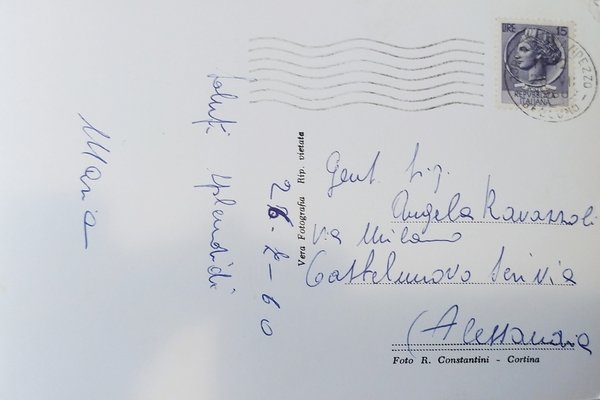 LIRE 15
REPUBBLICA
ITALIANA
Saluti splendidi
Maria
26-2-60
Vera Fotografia Rip. vietata
Gent. Sig.
Angela Ravazzoli
Via Milano
Castelnuovo Scrivia
(Alessandria
Foto R. Constantini - Cortina